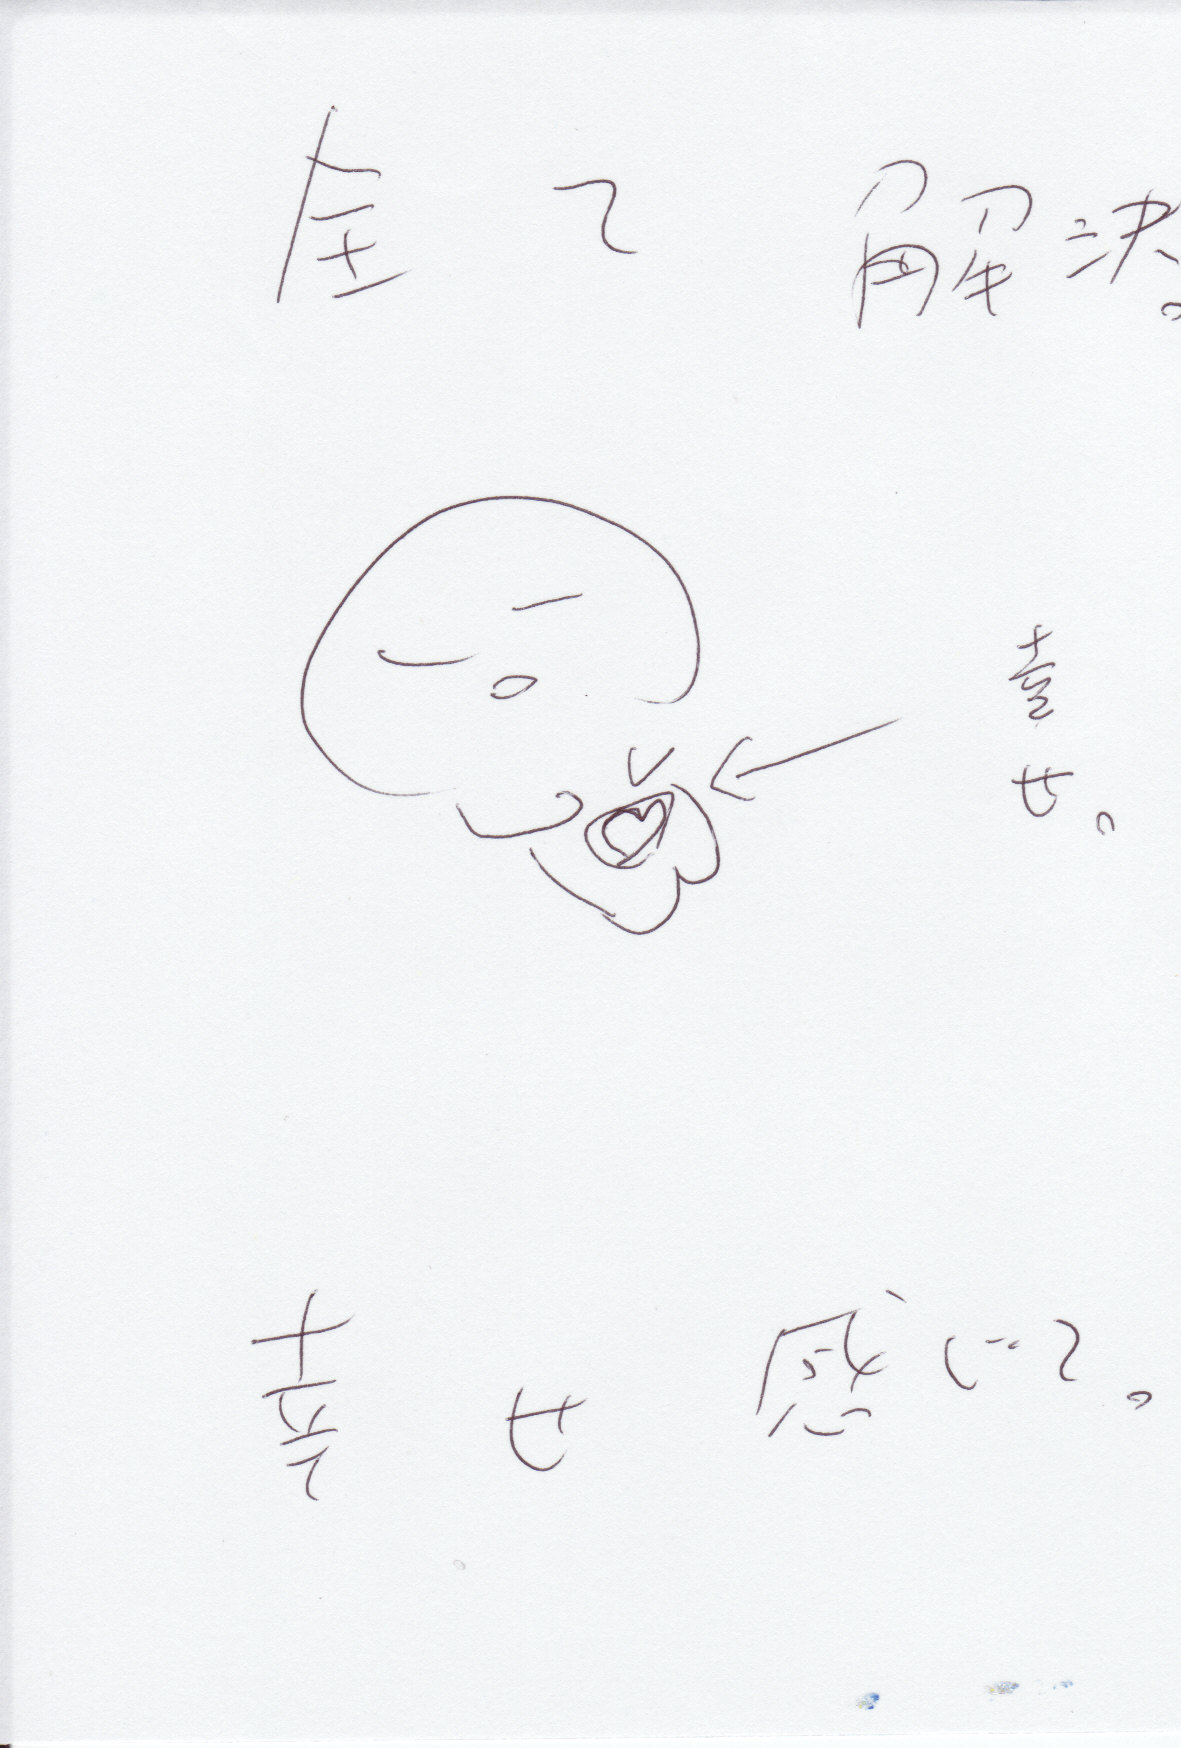 全て 解決。
幸せ。
幸せ 感じて。